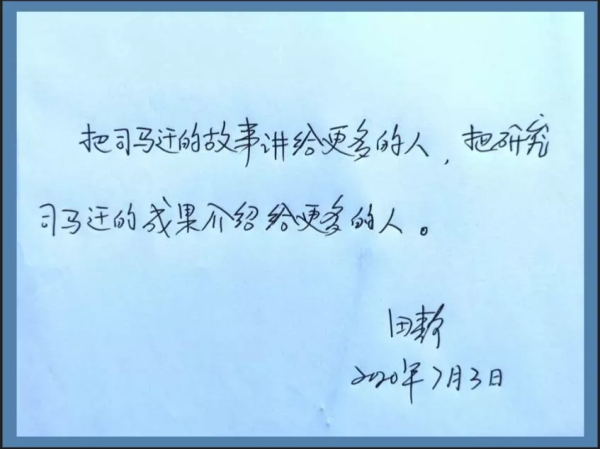 把司马迁的故事讲给更多的人，把研究
司马迁的成果介绍给更多的人。
田静
2020年7月3日